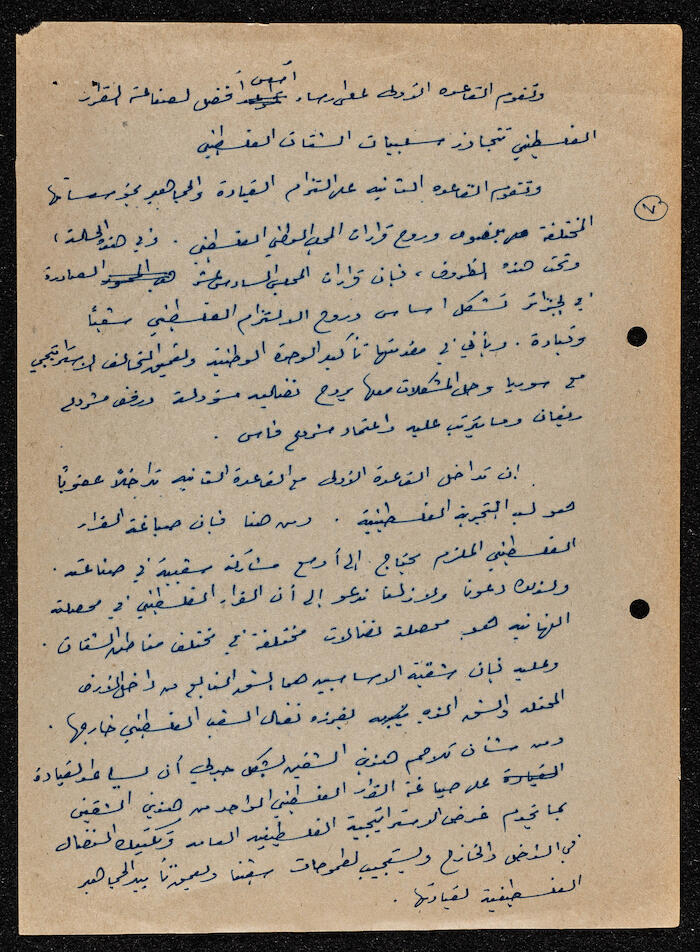 وتقوم القاعدة الأولى على ارساء أسس أفضل لصناعة القرار
الفلسطيني تتجاوز سلبيات الشتات الفلسطيني
وتقوم القاعدة الثانية على التزام القيادة والجماهير بمؤسساتها
٧
المختلفة بنصوص وروح قرارات المجلس الوطني الفلسطيني . وفي هذه الحالة ،
وتحت هذه الظروف ، فإن قرارات المجلس السادس عشر الصادرة
في الجزائر تشكل اساس وروح الالتزام الفلسطيني شعباً
وقيادة . ويأتي في مقدمتها تأكيد الوحدة الوطنية وتعميق التحالف الاستراتيجي
مع سوريا وحل المشكلات معها بروح نضالية مسؤولة ورفض مشروع
ريغان وما يترتب عليه واعتماد مشروع فاس .
ان تداخل القاعدة الأولى مع القاعدة الثانية تداخلاً عضوياً
هو لب التجربة الفلسطينية . ومن هنا فإن صياغة القرار
الفلسطيني الملزم يحتاج إلى أوسع مشاركة شعبية في صناعته .
ولذلك دعونا ولازلنا ندعو إلى أن القرار الفلسطيني في محصلته
النهائية هو محصلة نضالات مختلفة في مختلف مناطق الشتات .
وعليه فإن شقيه الاساسيين هما الشق النابع من داخل الأرض
المحتلة والشق الذي يفرزه نضال الشعب الفلسطيني خارجها .
ومن شأن تلاحم هذين الشقين بشكل جدلي أن يساعد القيادة
على صياغة القرار الفلسطيني الواحد من هذين الشقين
بما يخدم غرض الاستراتيجية الفلسطينية العامة وتكتيك النضال
في الداخل والخارج ويستجيب لطموحات شعبنا وتأييد الجماهير
الفلسطينية لقيادتها .